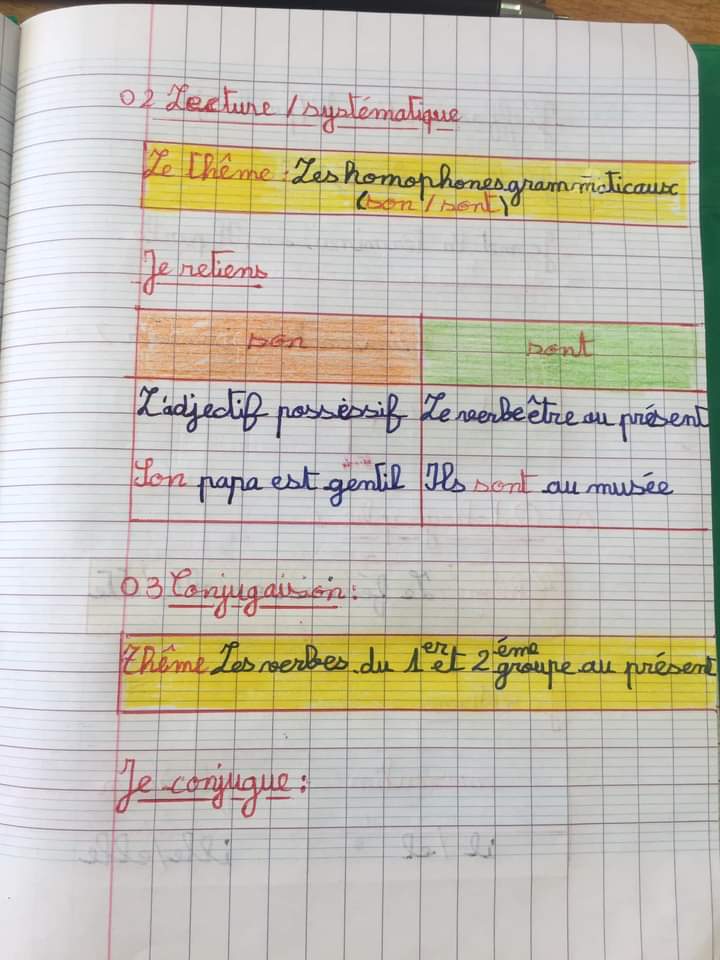 02 Lecture / systématique
Le Thême : Les homophones grammaticaux
(son / sont)
Je retiens
son sont
L'adjectif possèssif Le verbe être au présent
Son papa est gentil Ils sont au musée
03 Conjugaision :
Thême Les verbes du 1er et 2éme groupe au présent
Je conjugue :